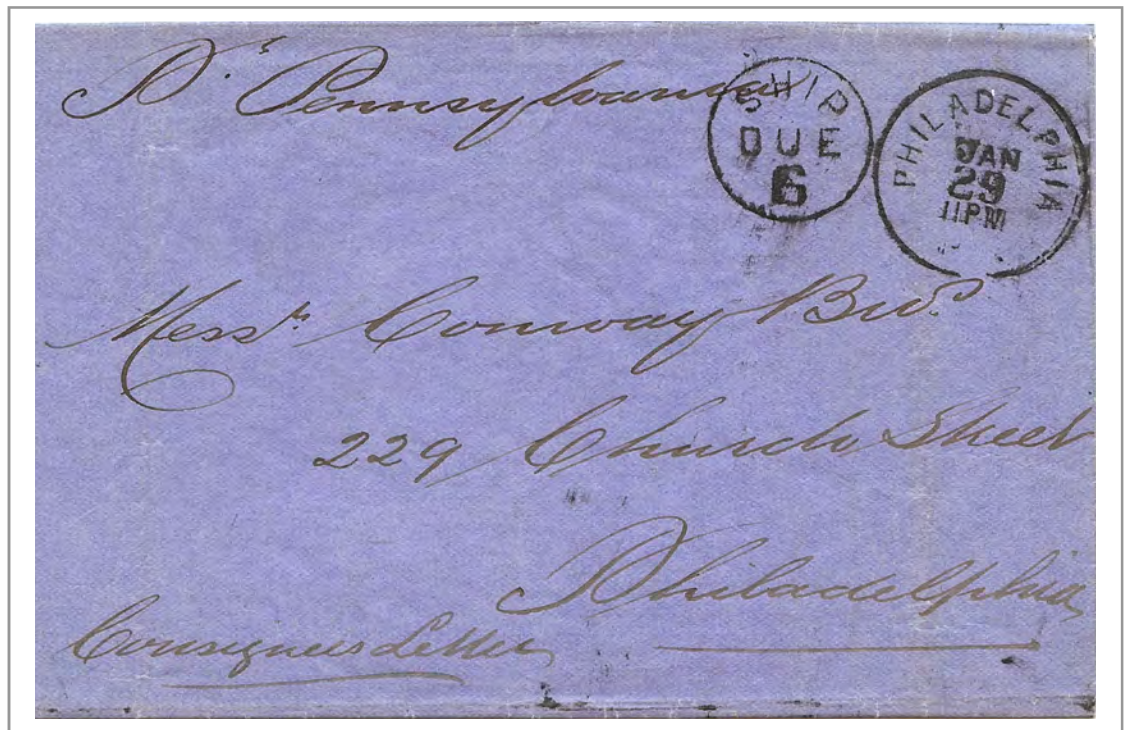 Pr. Pennsylvania
SHIP
DUE
6
PHILADELPHIA
JAN
29
11PM
Messrs Conway Bros
229 Church Street
Philadelphia
Consignees Letter